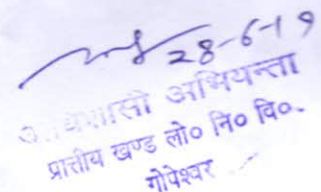 28-6-19
अधिशासी अभियन्ता
प्रान्तीय खण्ड लो० नि० वि०.
गोपेश्वर